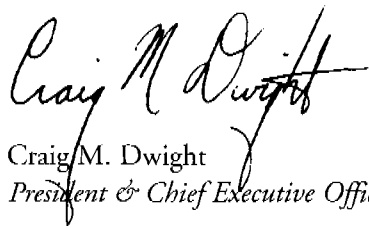 Craig M Dwight
Craig M. Dwight
President & Chief Executive Offi